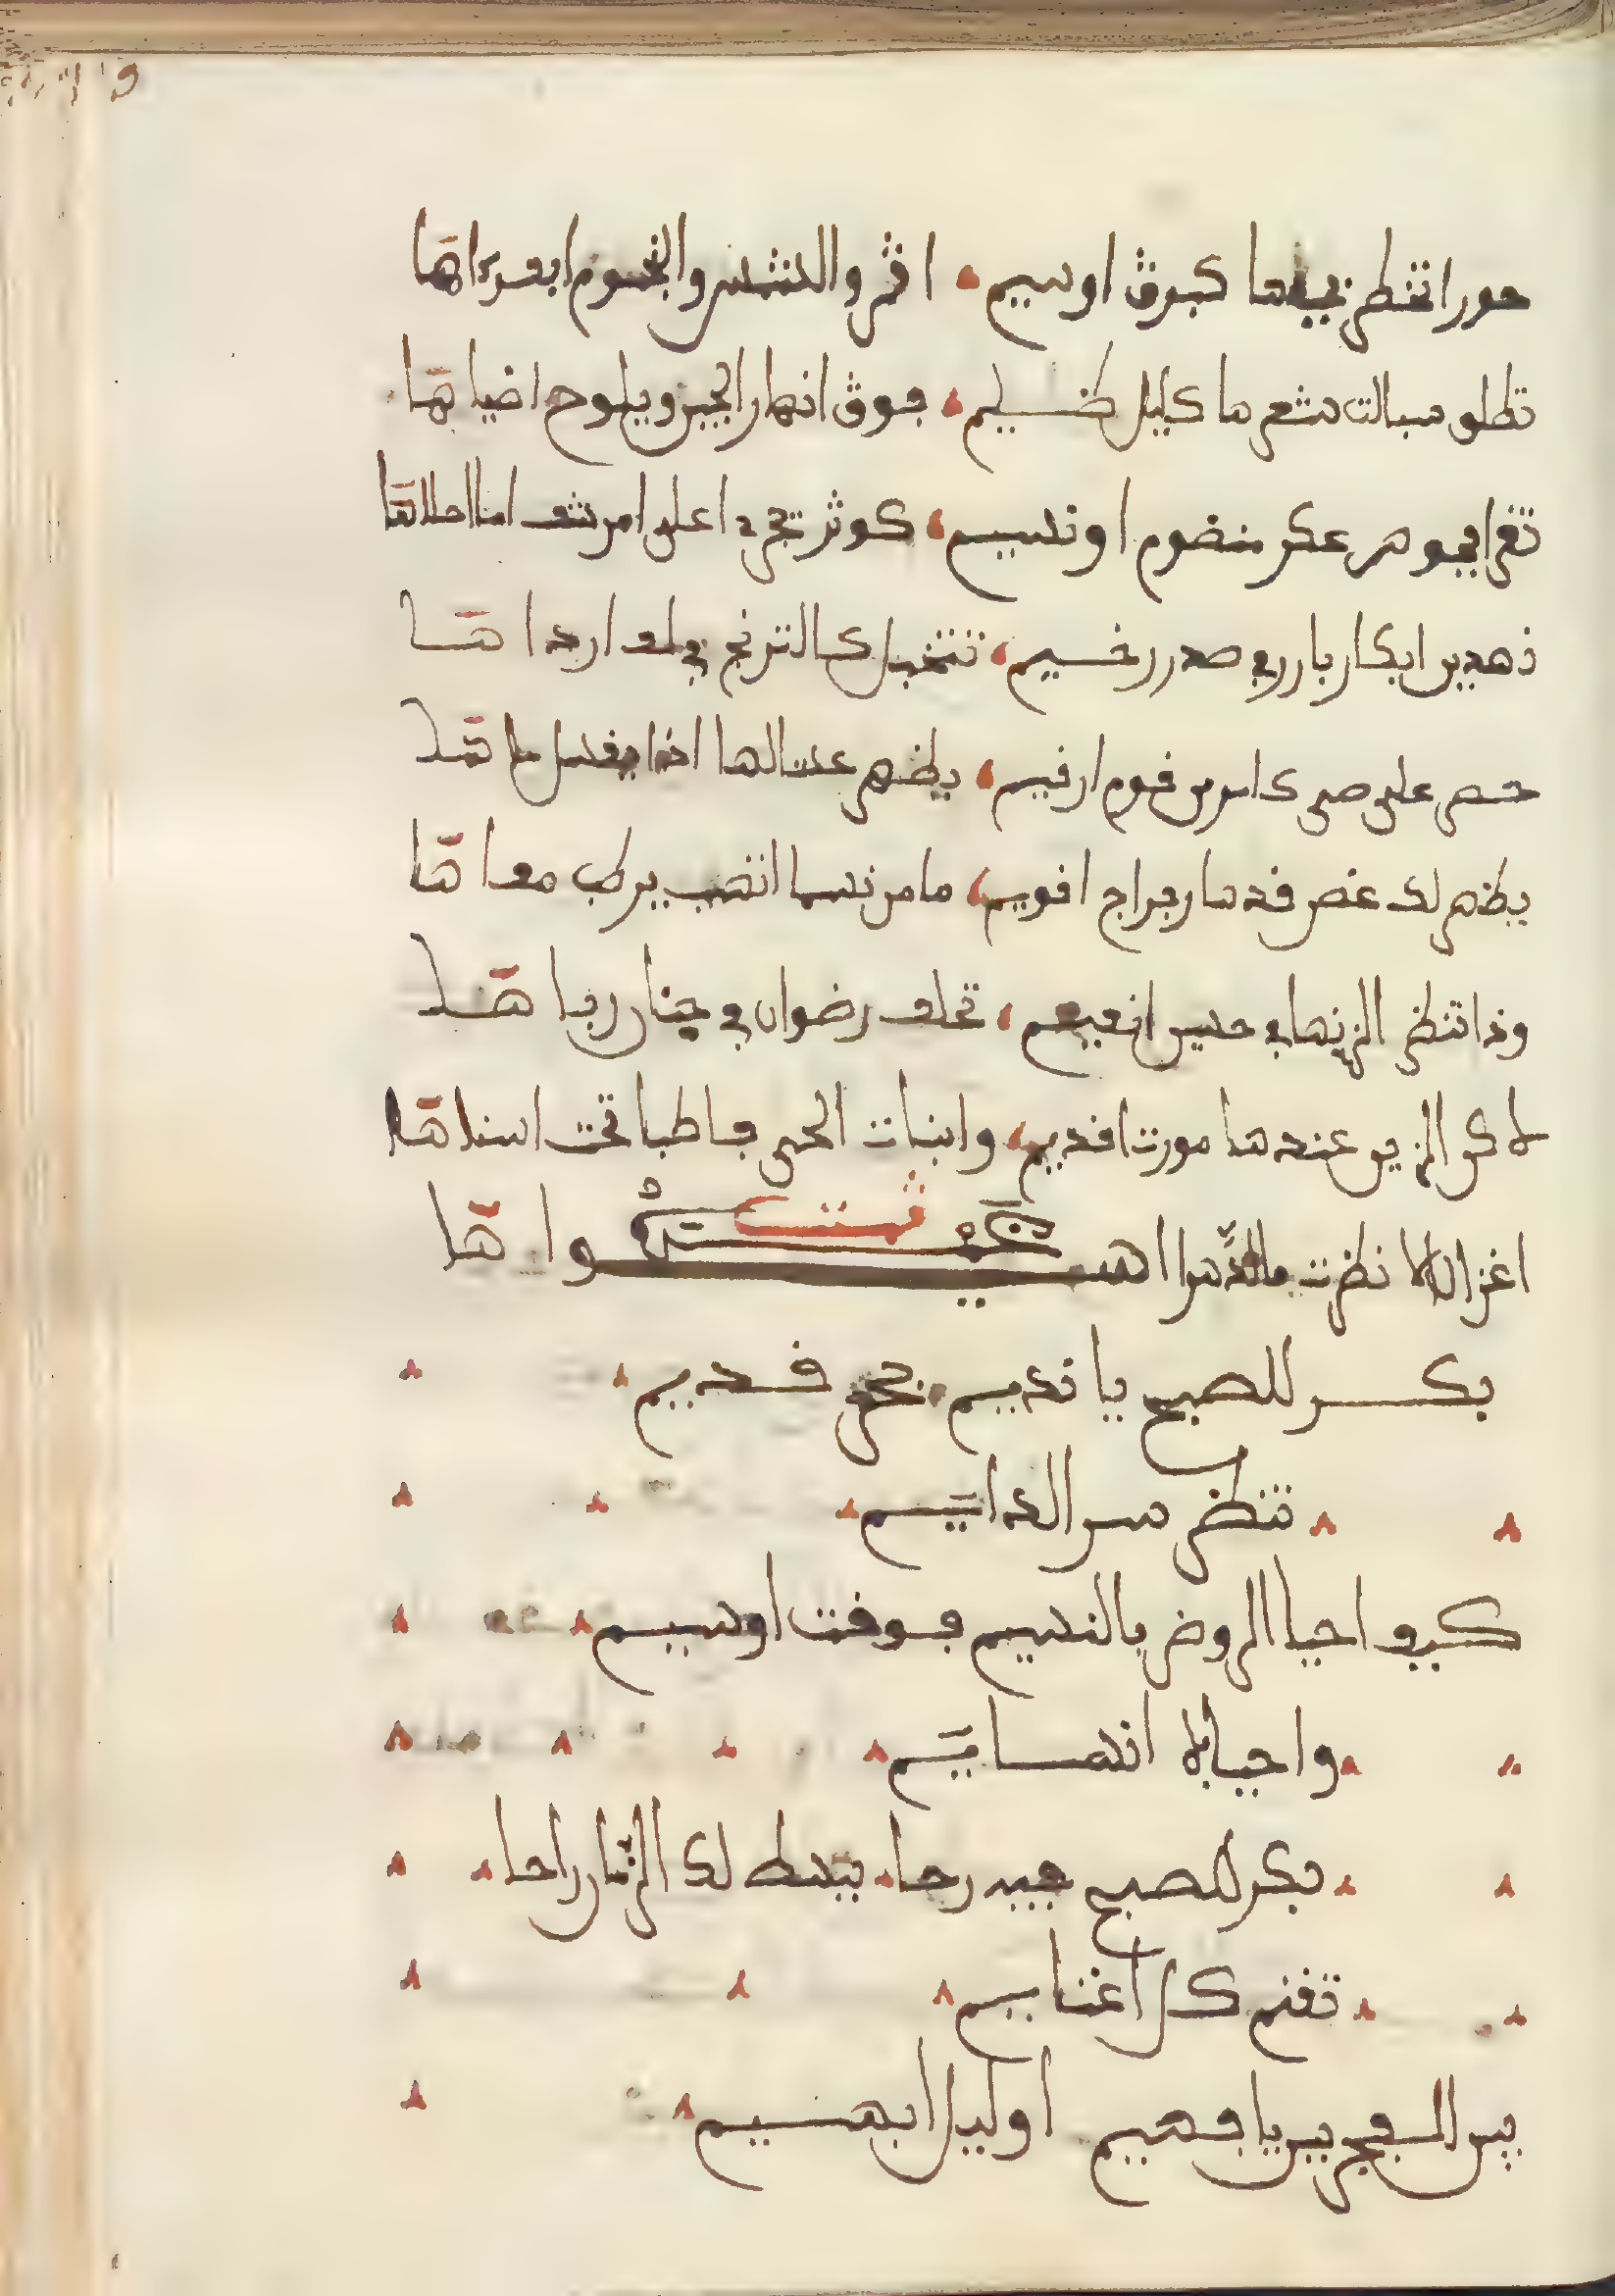 حورا تنظر جيدها كبرق اوسيم اقمر والشمس والنجوم ابعدراها
تطلق سبالت شعرها كليل ظليم فوق انهار الجبين ويلوح اضياها
ثغر الجوهر عكر منضوم اونسيم كوثر تجري اعلى امرشف اما احلاها
نهدين ابكار بارز في صدر رخيم تتخبل كالترنج في ارداها
خصر على صر كاس من فوم ارفيم يظهر عسالها اذا
يظهر لك غصن قدها رجراج اقويم ما من نسما انتصب يركب معاها
وذا تنظر الزينها في حسن انعيم تحلف رضوان في جنان رباها
لاكن الزين عندها مورث اقديم وابنات الحي فاطبا تحت اسناها
اغزالا نظرت اهيوها
تمت
بكر للصبح يا نديم بحق قديم
تنظر سر الدايم
كيف احيا الروض بالنسيم فوقت اوسيم
واجباه انسايم
بكر للصبح فيه رحا يبسط لك الزمان راحا
تغنم كل اغنايم
بين الفجر بين يا فهيم اوليل ابهيم